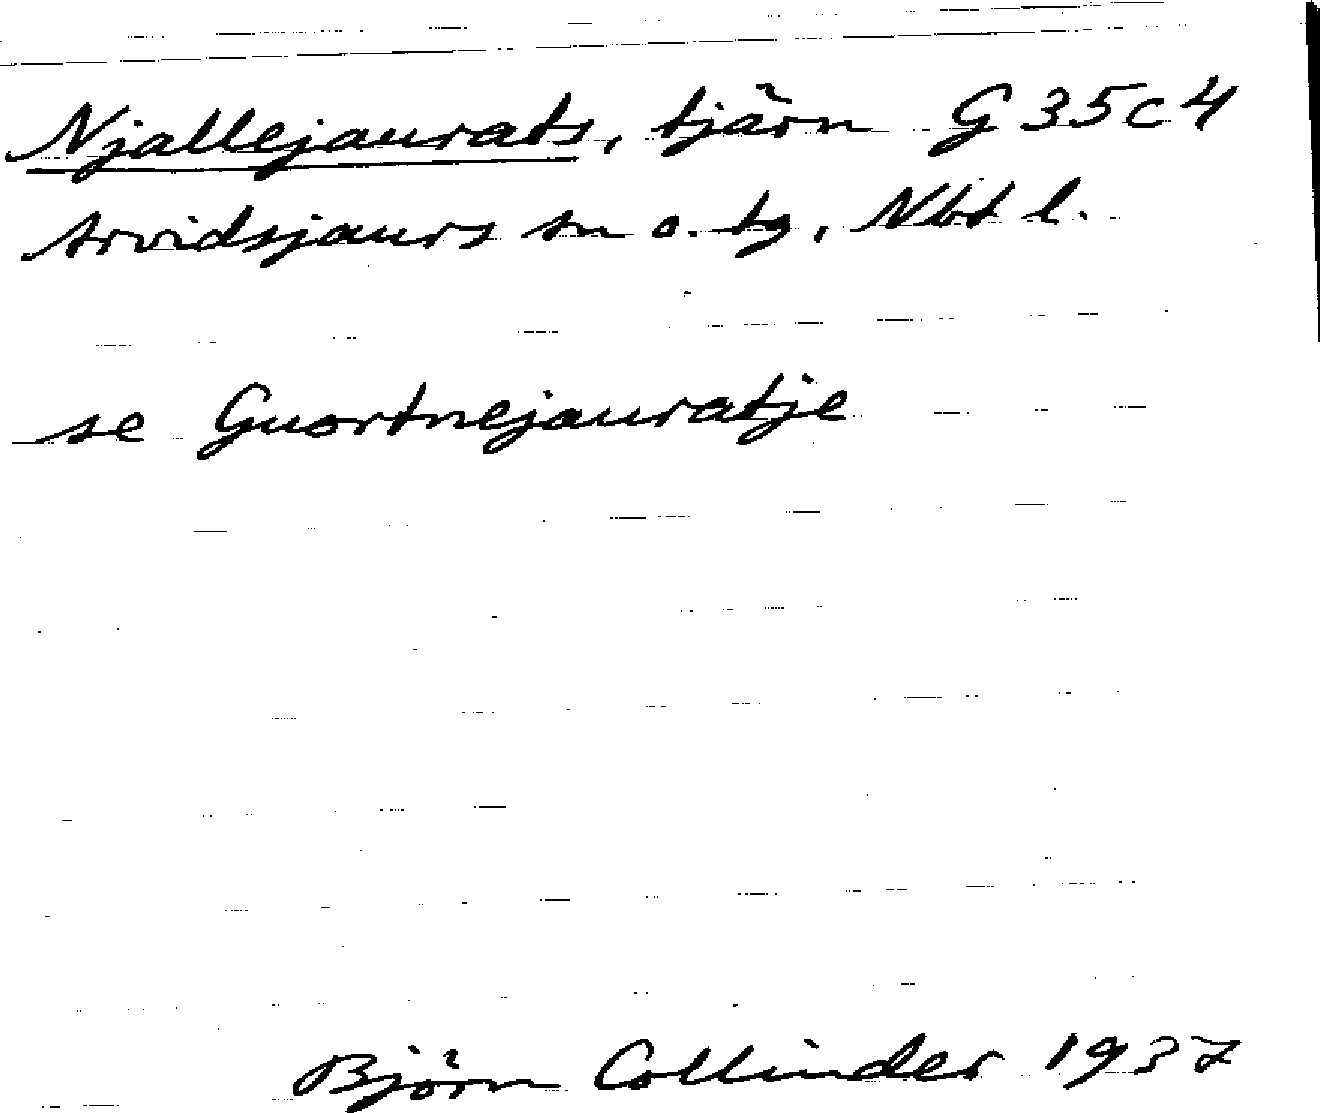 Njallejaurats, tjärn G 35 c 4
Arvidsjaurs sn o. tg, Nbt l.
se Guortnejauratje
Björn Collinder 1937